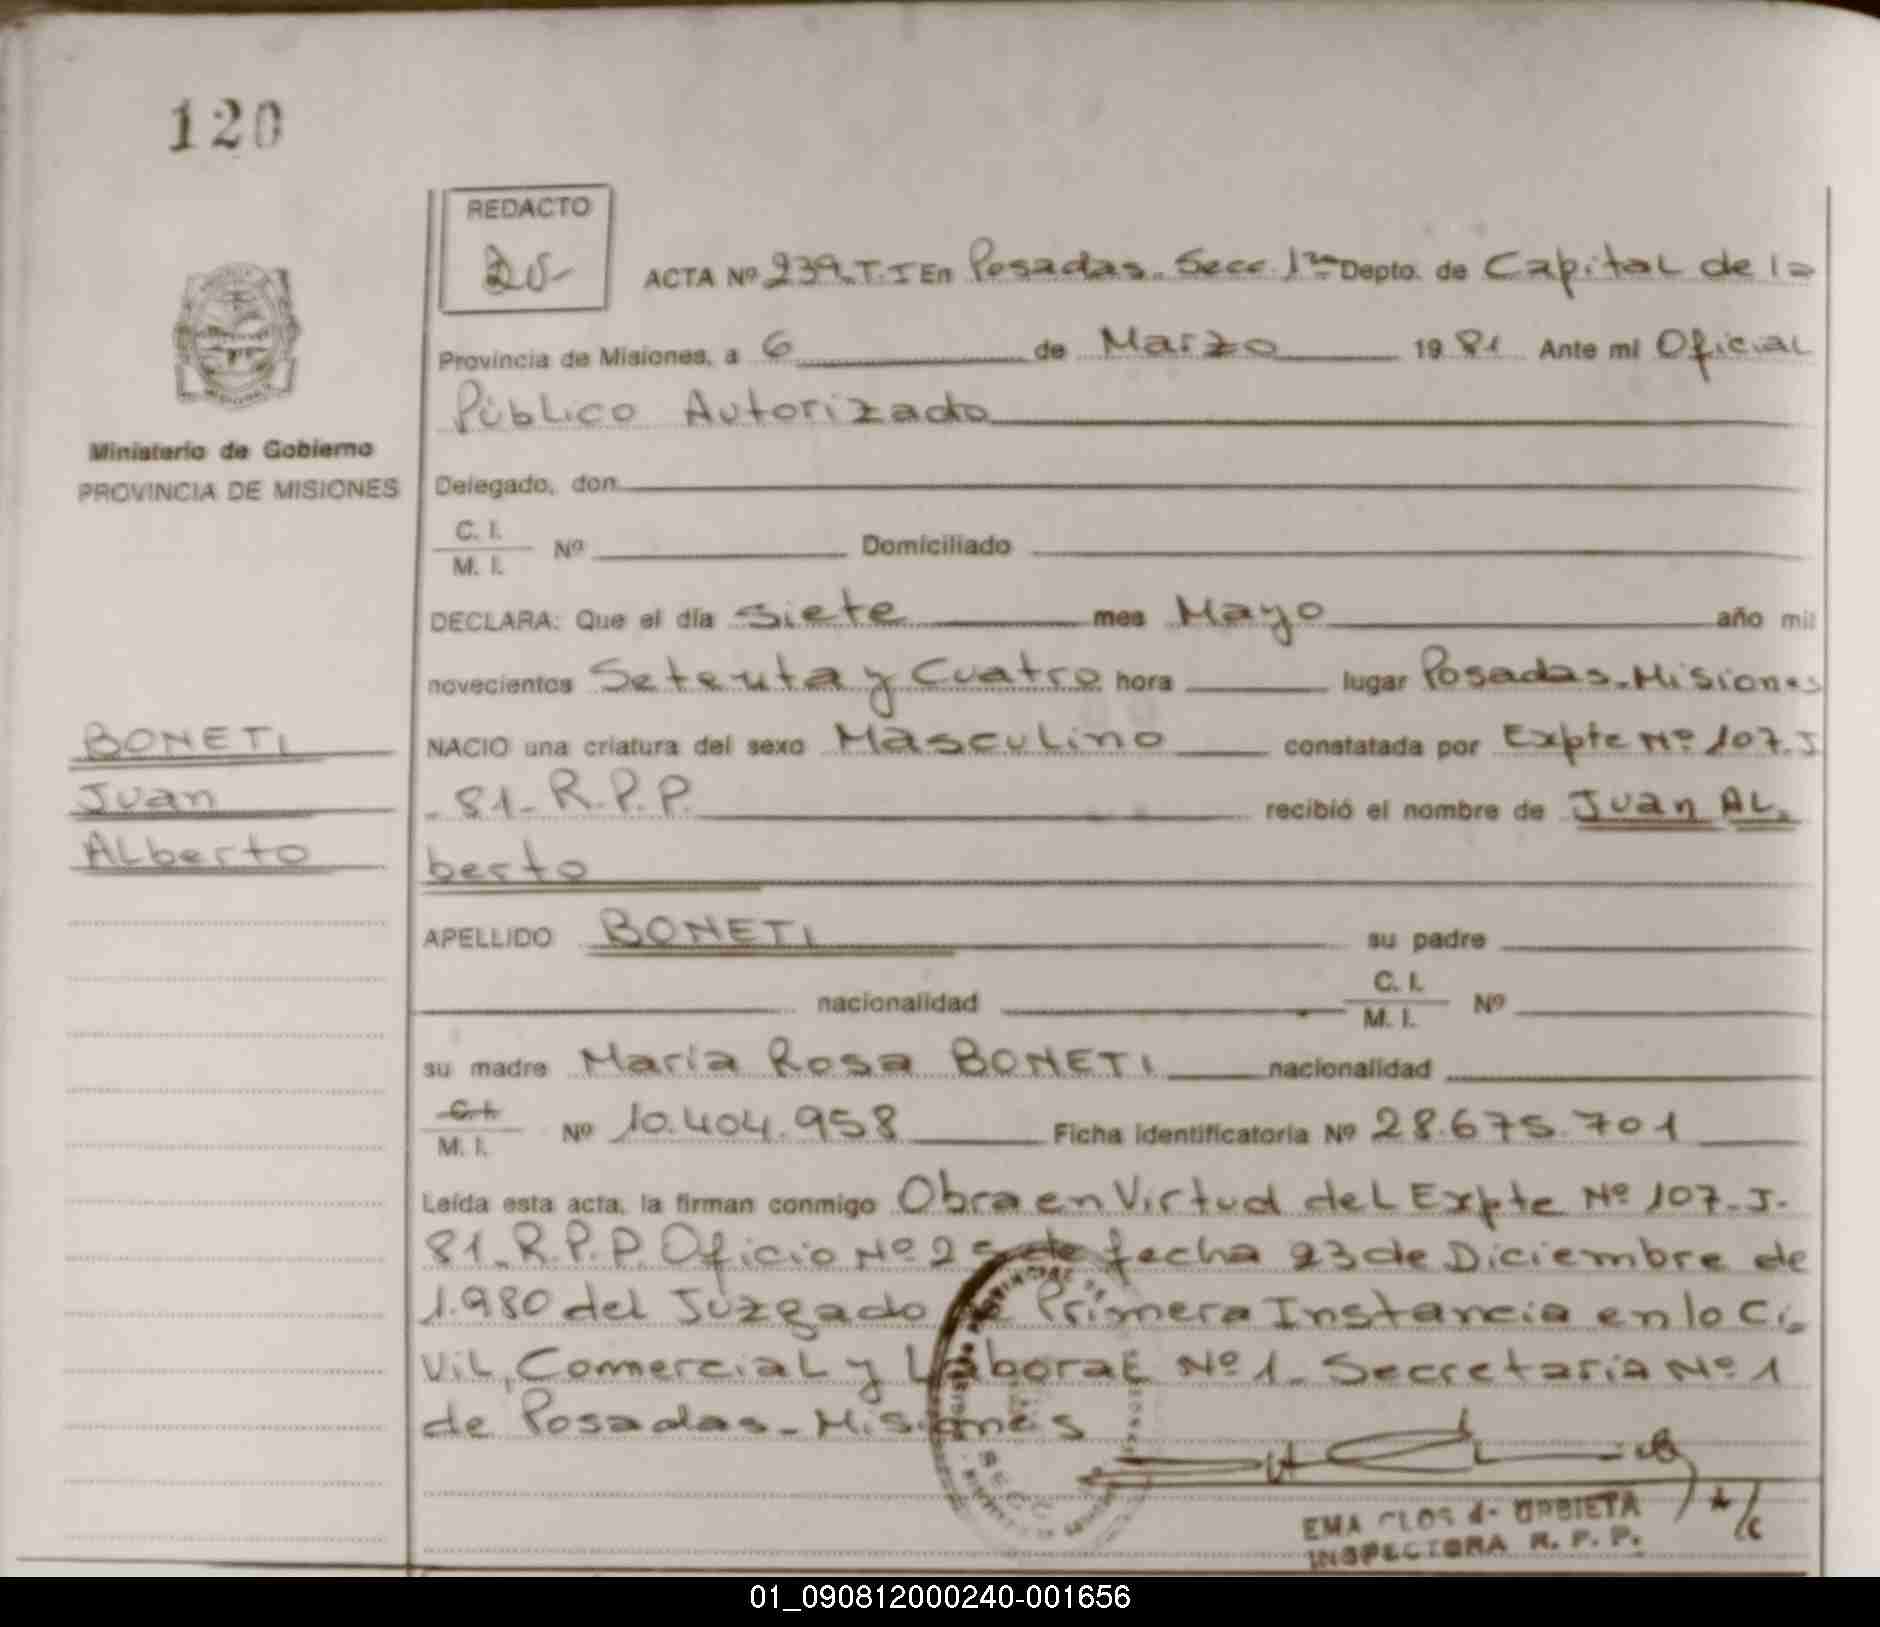 120
REDACTO
ACTA Nº 239.T.I En Posadas. Secc. 1ra Depto. de Capital de la
Provincia de Misiones, a 6 de Marzo 1981 Ante mi Oficial
Público Autorizado
Ministerio de Gobierno
PROVINCIA DE MISIONES
Delegado, don
C. I.
M. I.
Nº Domiciliado
DECLARA: Que el día Siete mes Mayo año mil
novecientos Setenta y Cuatro hora lugar Posadas-Misiones
BONETI
Juan
ALberto
NACIO una criatura del sexo MascuLino constatada por Expte Nº 107.J
-81-R.P.P. recibió el nombre de Juan AL-
berto
APELLIDO BONETI su padre
nacionalidad C. I. M. I. Nº
su madre María Rosa BONETI nacionalidad
C. I.
M. I. Nº 10.404.958 Ficha identificatoria Nº 28.675.701
Leída esta acta, la firman conmigo Obra en Virtud deL Expte Nº 107-J-
81-R.P.P. Oficio Nº 2 de fecha 23 de Diciembre de
1.980 del Juzgado de Primera Instancia en lo Ci-
viL, ComerciaL y LaboraL Nº 1- Secretaria Nº 1
de Posadas-Misiones
EMA CLOS d- URBIETA
INSPECTORA R. P. P.
01_090812000240-001656